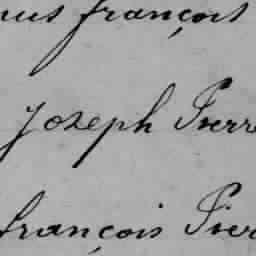 françois
Joseph Pierre
françois Pier